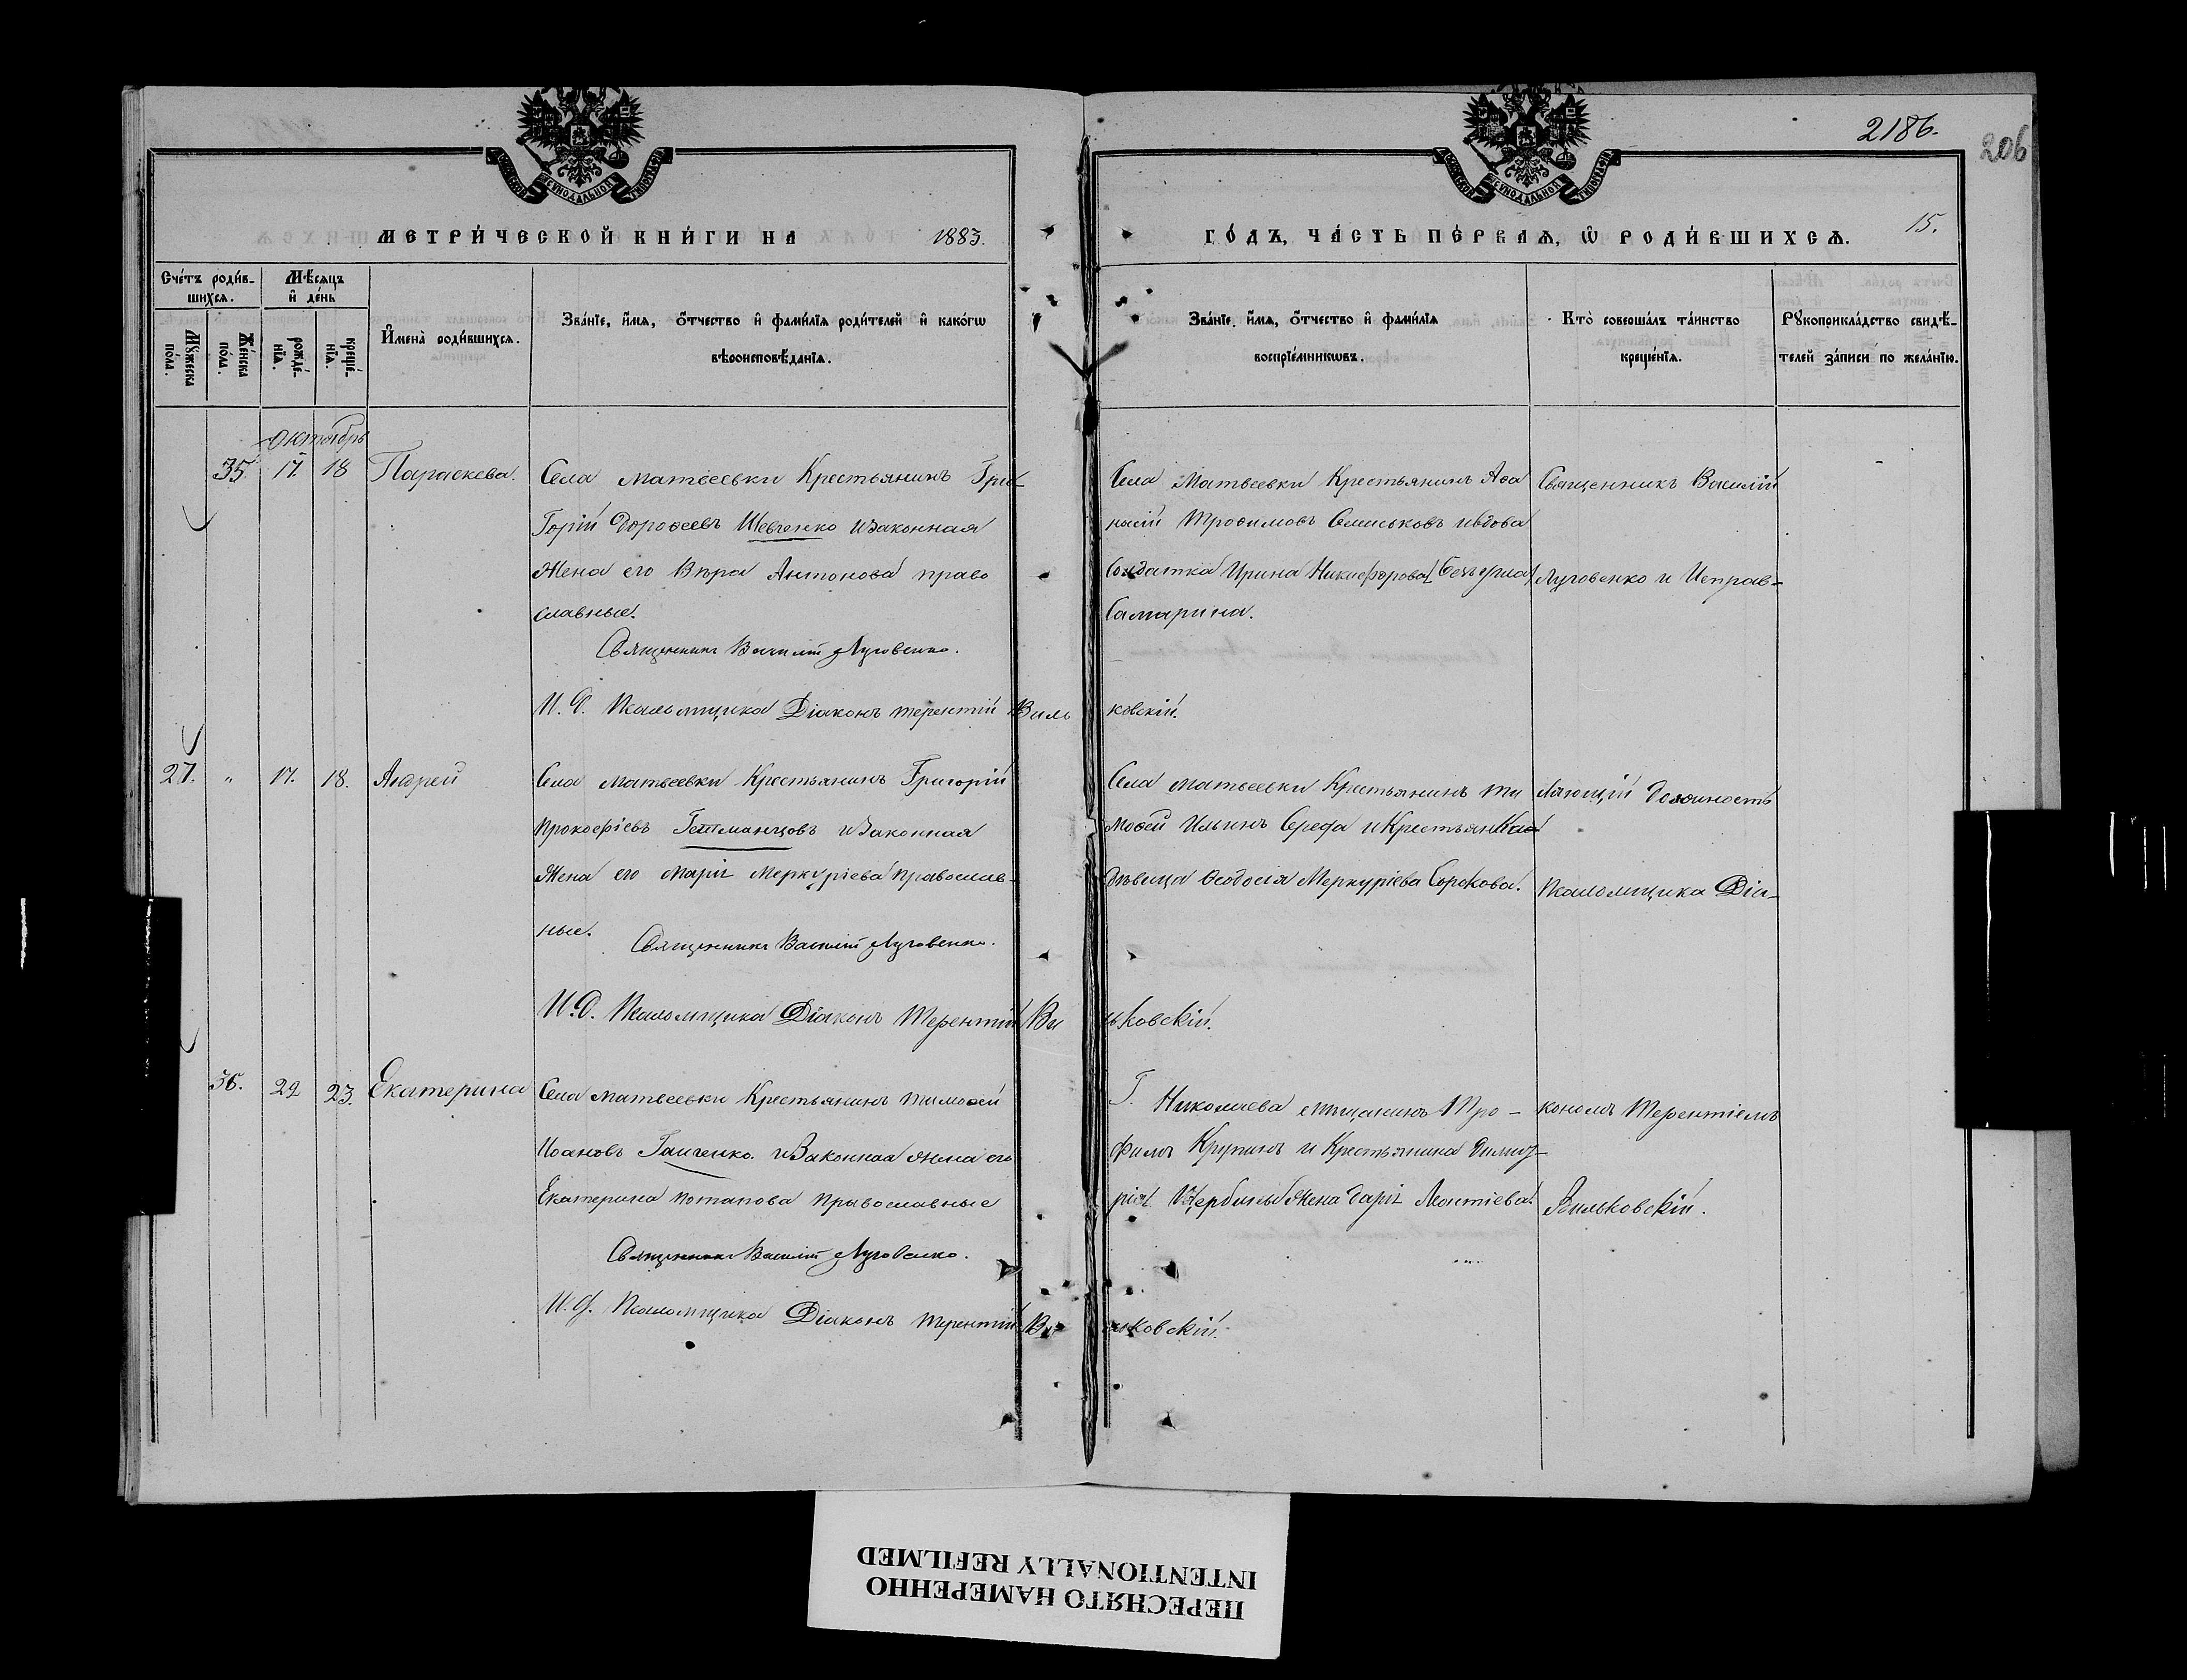 2186.
206
МЕТРИ́ЧЕСКОЙ КНИ́ГИ НА 1883.
ГО́ДЪ, ЧА́СТЬ ПЕ́РВАѦ, Ѡ҆ РОДИ́ВШИХСѦ. 15.
Сче́тъ роди́в-
шихсѧ.
Мꙋ́жеска по́ла.
Же́нска по́ла.
Мѣ́сѧцъ
и҆ де́нь
рожде́-нїѧ.
креще́-нїѧ.
И҆мена̀ роди́вшихсѧ.
Зва́нїе, и҆́мѧ, ѻ҆́тчество и҆ фами́лїѧ роди́телей и҆ како́гѡ
вѣроисповѣ́данїѧ.
Зва́нїе, и҆́мѧ, ѻ҆́тчество и҆ фами́лїѧ
воспрїе́мникѡвъ.
Кто̀ соверша́лъ та́инство
креще́нїѧ.
Рꙋкоприкла́дство свидѣ́-
телей за́писи по жела́нїю.
Октябрь
35. 17. 18 Параскева.
Села Матвеевки Крестьянинъ Гри-
горій Дорофеевъ Шевченко и Законная
Жена его Вѣра Антонова право
славные.
Священникъ Василій Луговенко.
И. Д. Псаломщика Діаконъ Терентій Виль
ковскій.
Села Матвеевки Крестьянинъ Афа
насій Трофимовъ ивдова
Солдатка Ирина Никифорова
Самарина.
Священникъ Василій
Луговенко и Исправ-
27. " 17. 18. Андрей
Села Матвеевки Крестьянинъ Григорій
Прокофіевъ Гетманцовъ и Законная
Жена его Марія Меркуріева православ-
ные.
Священникъ Василій Луговенко.
И. Д. Псаломщика Діаконъ Терентій Ви
льковскій.
Села Матвеевки Крестьянинъ Ти
мофей Ильинъ Середа и Крестьянская
дѣвица Ѳеодосія Меркуріева Сорокова.
ляющій должность
Псаломщика Діа-
36. 22 23. Екатерина
Села Матвеевки Крестьянинъ Тимофей
Иоановъ Ганченко. и Законная Жена его
Екатерина Потапова Православные
Священникъ Василій Луговенко.
И. Д. Псаломщика Діаконъ Терентій Ви
льковскій.
Г. Николаева мѣщанинъ Тро-
фимъ Крупинъ и Крестьянина Димит-
рія Щербины Жена Дарія Леонтіева.
кономъ Терентіемъ
Вильковскій.
ПЕРЕСНЯТО НАМЕРЕННО
INTENTIONALLY REFILMED